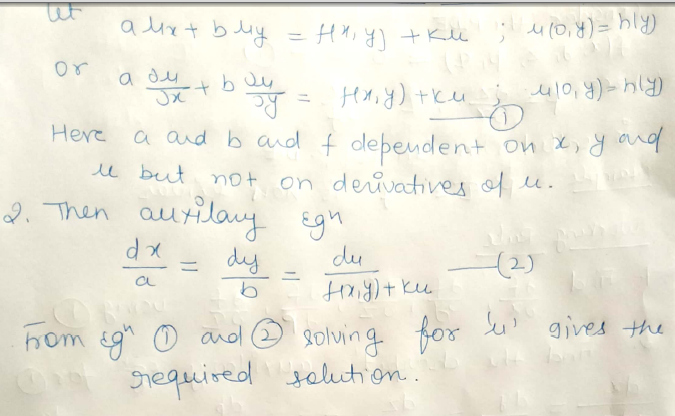 let
a ux + b uy = f(x, y) + ku ; u(0, y) = h(y)
or a ∂u/∂x + b ∂u/∂y = f(x, y) + ku ; u(0, y) = h(y) —①
Here a and b and f dependent on x, y and
u but not on derivatives of u.
2. Then auxilary Eqn
dx/a = dy/b = du/f(x,y)+ku —(2)
From Eqn ① and ② solving for 'u' gives the
required solution.